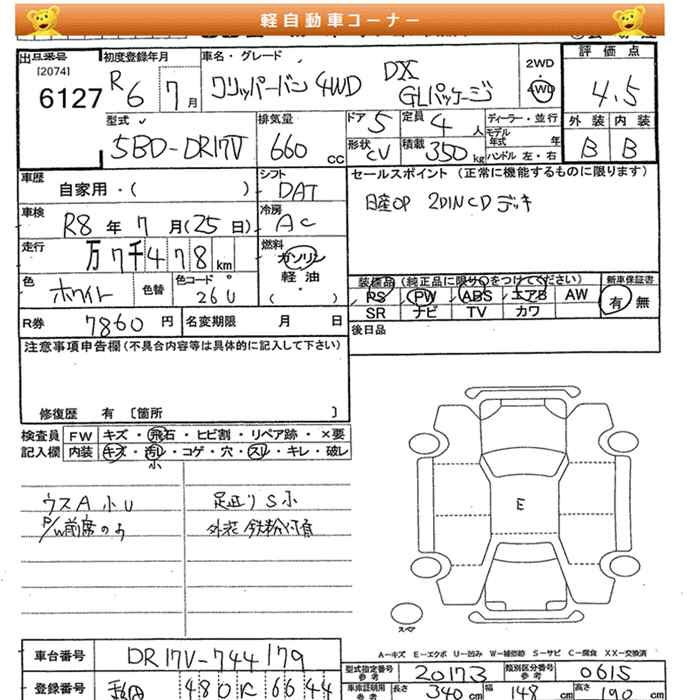 軽自動車コーナー
出品番号 [2074] 6127
初度登録年月 R6 7月
車名・グレード クリッパーバン 4WD DX GLパッケージ
2WD 4WD
評価点 4.5
型式 5BD-DR17V
排気量 660 cc
ドア 5 定員 4 人
形状 CV 積載 350 kg
ディーラー・並行
モデル年式 年
ハンドル 左・右
外装 内装
B B
車歴 自家用・( )
シフト DAT
セールスポイント (正常に機能するものに限ります)
日産OP 2DINCDデッキ
車検 R8年7月(25日)
冷房 AC
走行 万7千478km
燃料 ガソリン 軽油 ( ・ )
色 ホワイト 色替 色コード 26U
装備品(純正品に限り○をつけてください) 新車保証書
PS PW ABS エアB AW 有 無
SR ナビ TV カワ
R券 7860円 名変期限 月 日
後日品
注意事項申告欄(不具合内容等は具体的に記入して下さい)
修復歴 有 [箇所 ]
検査員 FW キズ・飛石・ヒビ割・リペア跡・×要
記入欄 内装 キズ・汚レ・コゲ・穴・スレ・キレ・破レ
小
ウスA 小U 足廻りS小
P/W前席のみ 外装 鉄粉付着
E
スペア
A-キズ E-エクボ U-凹み W-補修跡 S-サビ C-腐食 XX-交換済
車台番号 DR17V-744179
型式指定番号 参考 20173 類別区分番号 参考 0615
登録番号 480 に 6644
車庫証明用 参考 長さ 340cm 幅 148cm 高さ 190cm